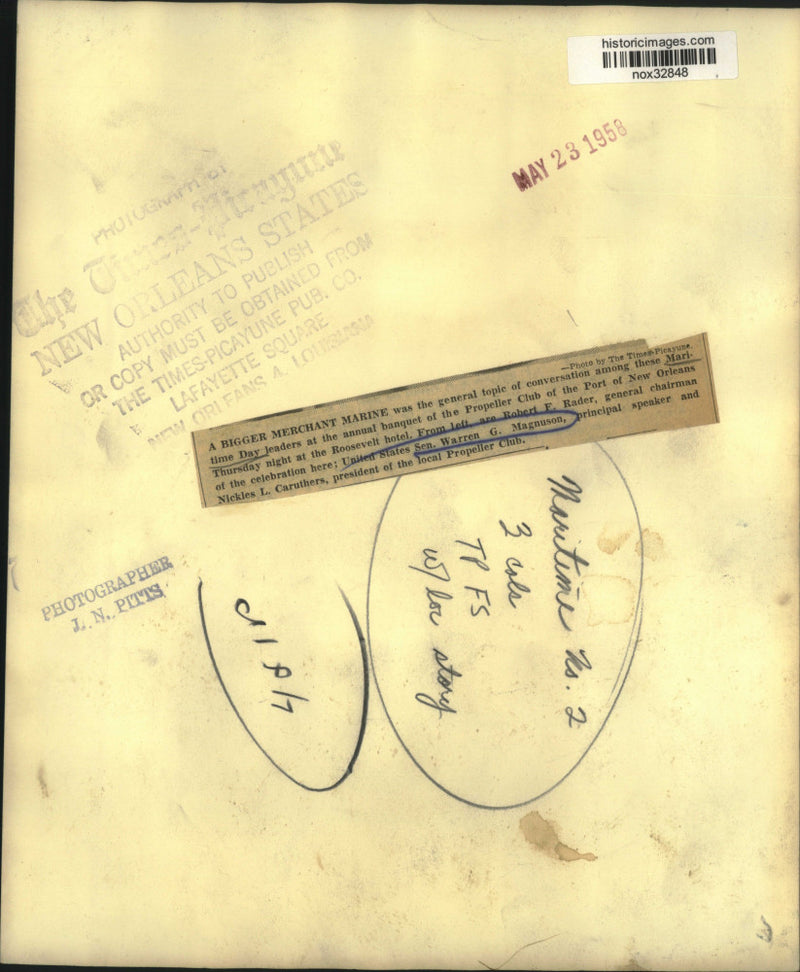 historicimages.com
nox32848
MAY 23 1958
PHOTOGRAPH BY
The Times-Picayune
NEW ORLEANS STATES
AUTHORITY TO PUBLISH
OR COPY MUST BE OBTAINED FROM
THE TIMES-PICAYUNE PUB. CO.
LAFAYETTE SQUARE
NEW ORLEANS, LOUISIANA
—Photo by The Times-Picayune.
A BIGGER MERCHANT MARINE was the general topic of conversation among these Mari-
time Day leaders at the annual banquet of the Propeller Club of the Port of New Orleans
Thursday night at the Roosevelt hotel. From left, are Robert F. Rader, general chairman
of the celebration here; United States Sen. Warren G. Magnuson, principal speaker and
Nickles L. Caruthers, president of the local Propeller Club.
Maritime No. 2
3 cols
TP FS
w/ loc story
PHOTOGRAPHER
J. N. PITTS